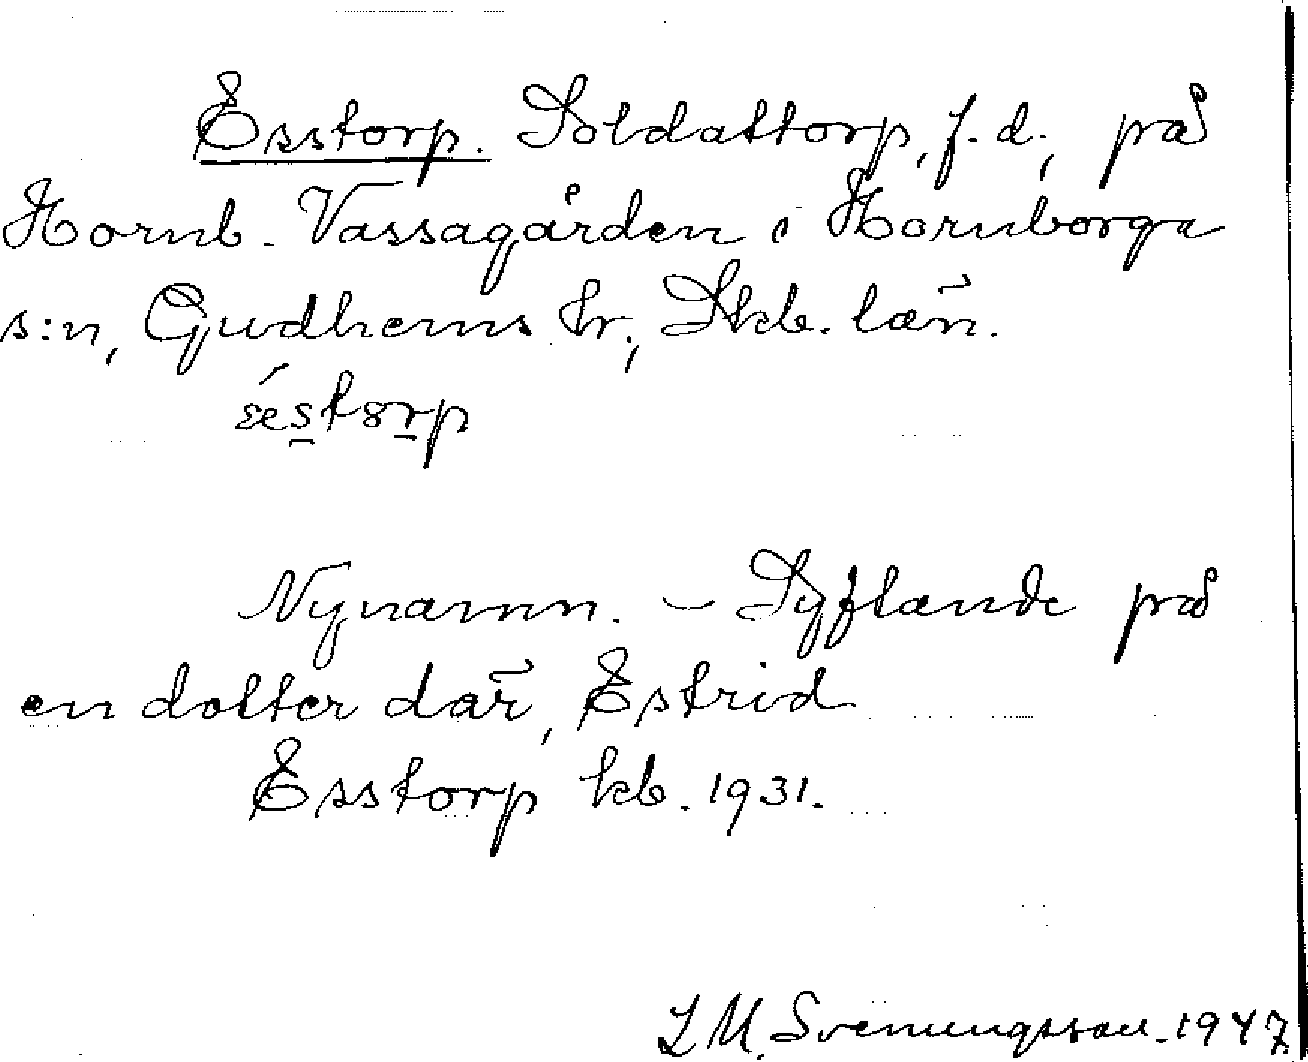 Esstorp. Soldattorp, f.d., på
Hornb. Vässagården i Hornborga
s:n, Gudhems hr., Skb. län.
Nynamn. – Syftande på
en dotter där, Estrid
Esstorp kb. 1931.
L M. Svenungsson. 1947.